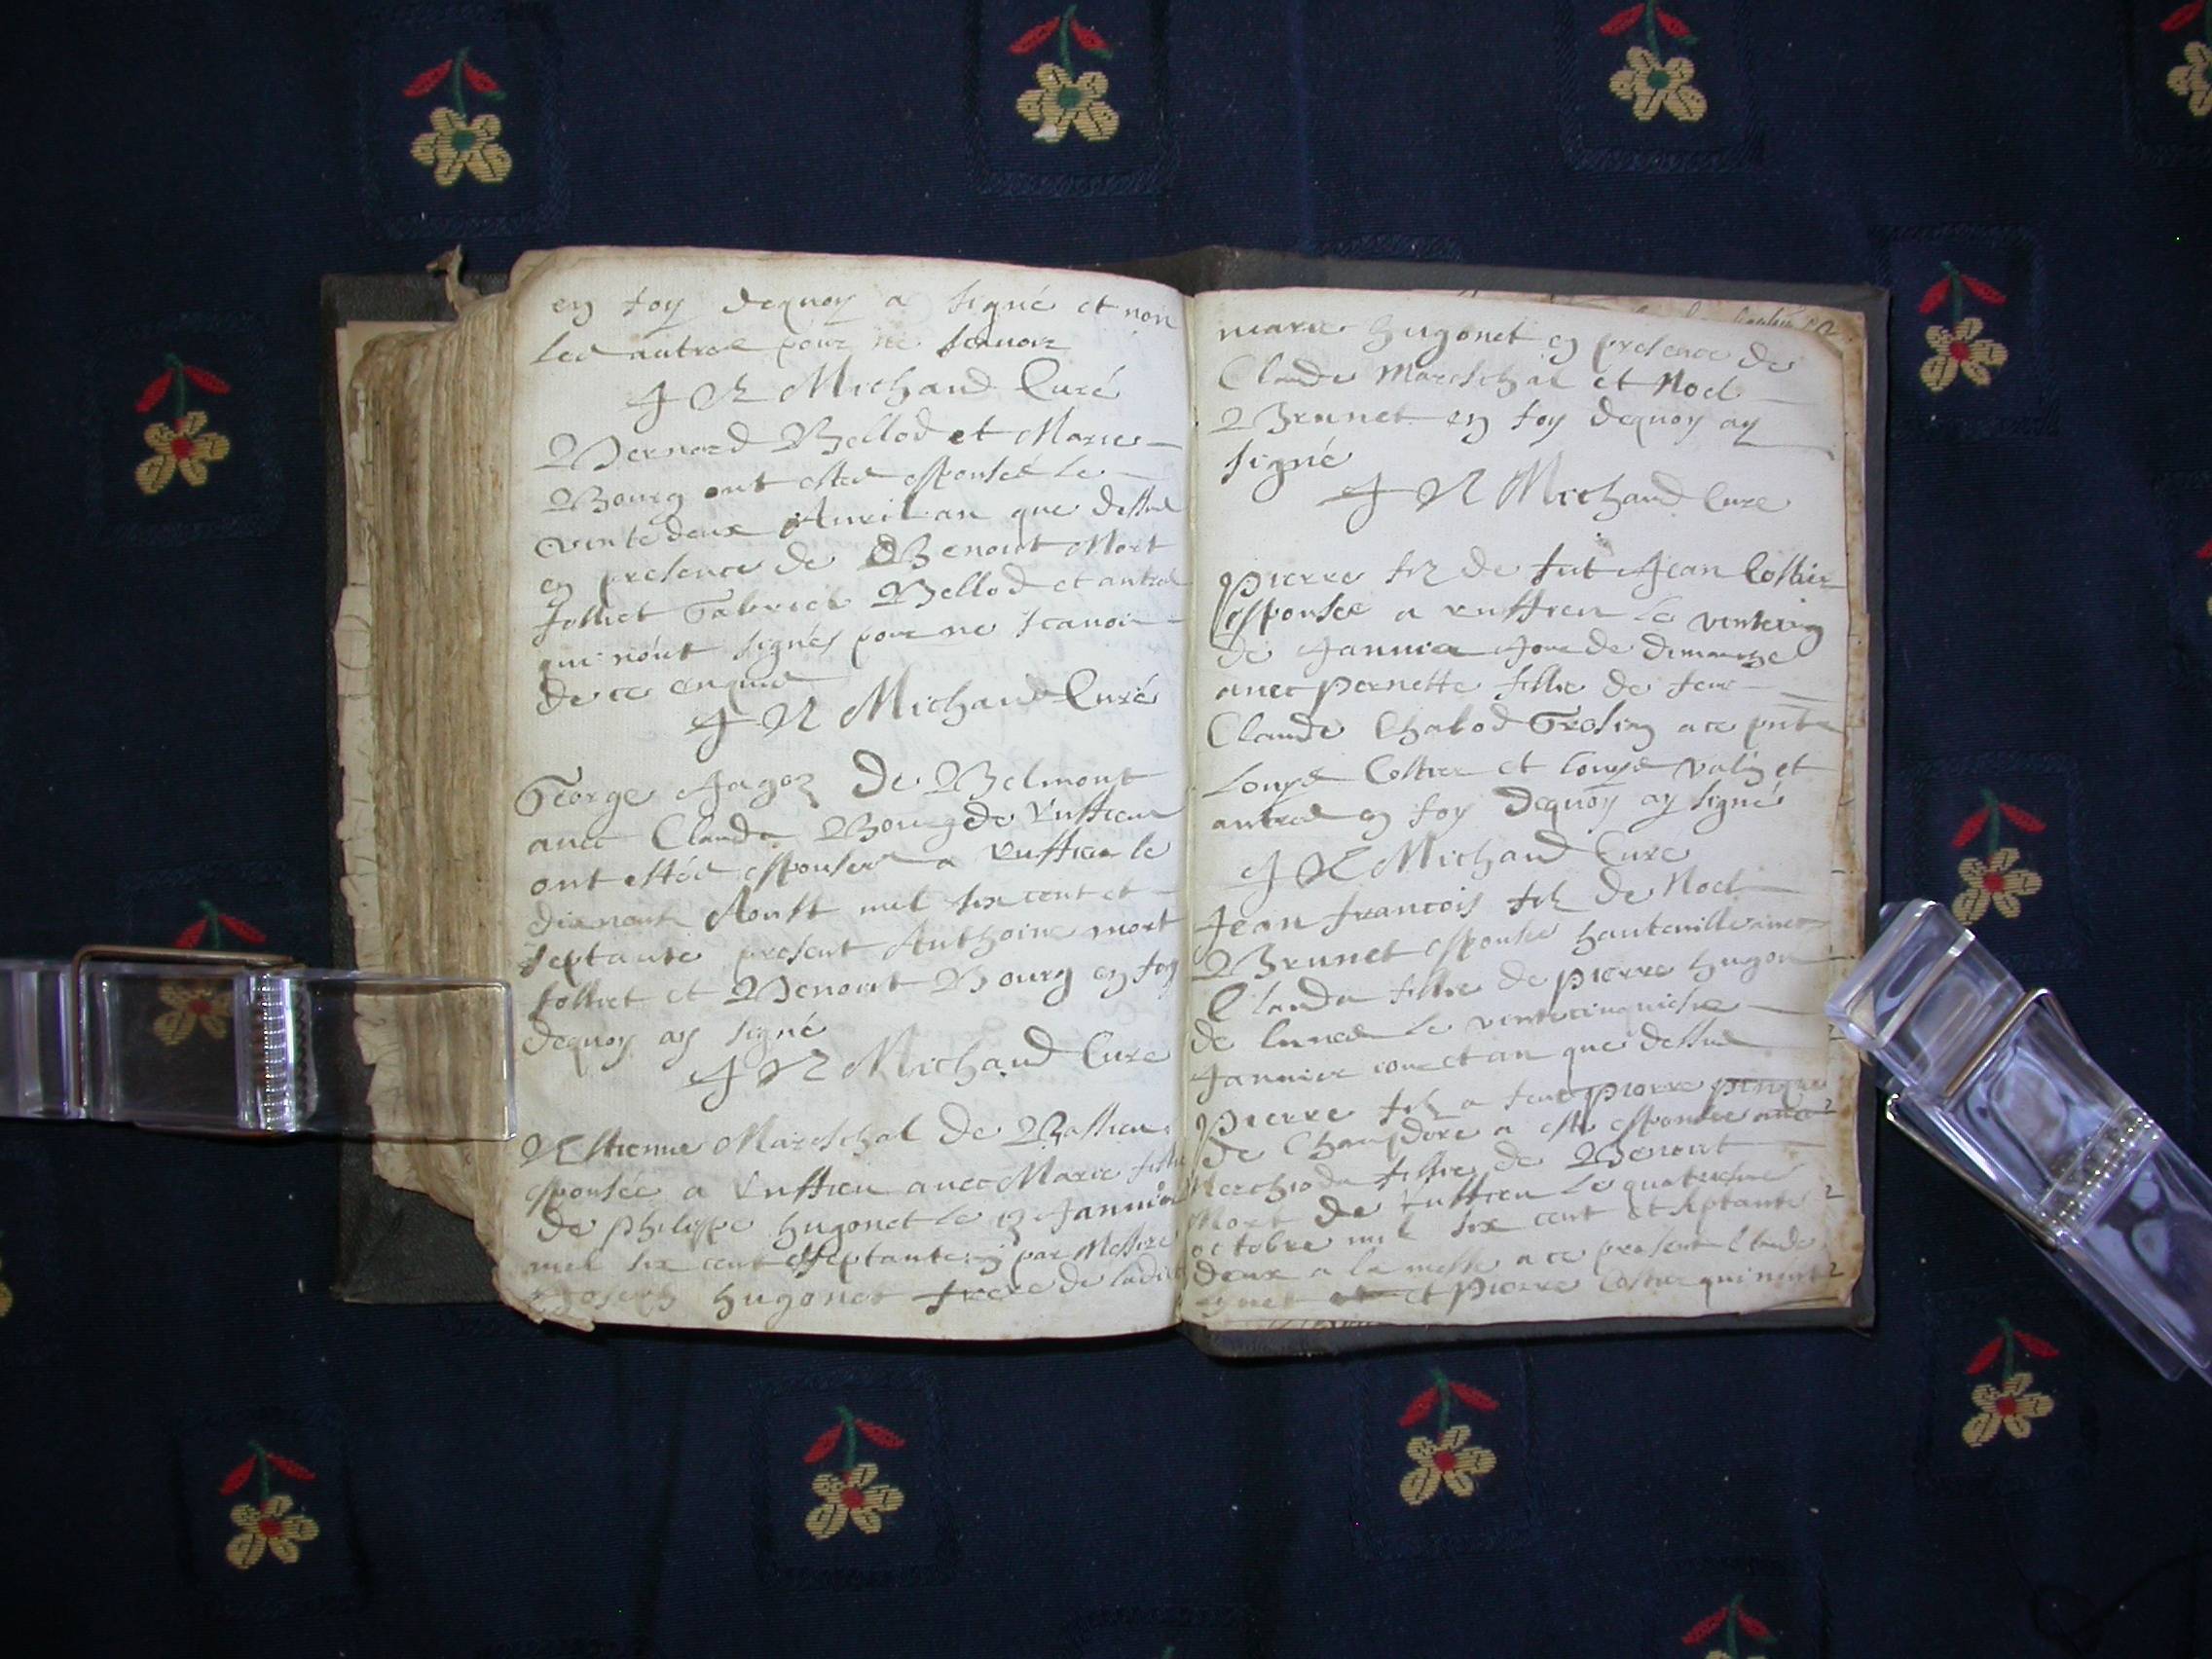 en foy dequoy a signé et non
les autres pour ne scauoir
J R Michaud Curé
Bernard Bellod et Marie
Bourg ont estes esponsés le
vinte deux Auril an que dessus
en presence de Benoist Mort
Jolliet Gabriel Bellod et autres
qui n'ont signés pour ne scauoir
de ce enquis
J R Michaud Curé
George Jagoz De Belmont
auec Clauda Bourg de Ruffieu
ont estés esponses a Ruffieu le
dixneuf Aoust mil six cent et
septante present Anthoine mort
Jolliet et Benoist Bourg en foy
dequoy ay signé
J R Michaud Cure
Estienne Mareschal de
esponsée a Ruffieu auec Marie fille
de philippe hugonet le Januier
mil six cent septante par Messire
Joseph hugonet frere de ladite
marie hugonet en presence de
Claude Mareschal et Noel
Brunet en foy dequoy ay
signé
J R Michaud Cure
pierre filz de Jean Costier
esponsee a ruffieu le
de Januier Jour de dimanche
auec pernette fillie de feu
Claude Chabod a ce pnts
Louys Costier et Louys et
autres en foy Dequoy ay signé
J R Michaud Cure
Jean francois filz de Noel
Brunet esponse hauteuille auec
Clauda fillie de pierre hugon
de le
Januier et an que dessus
pierre filz a feu pierre
de Champdore a este esponsee auec
fillie de Benoist
Mort de Ruffieu le quatriesme
octobre mil six cent et septante
deux a la messe a ce present Claude
et pierre Costier qui n'ont